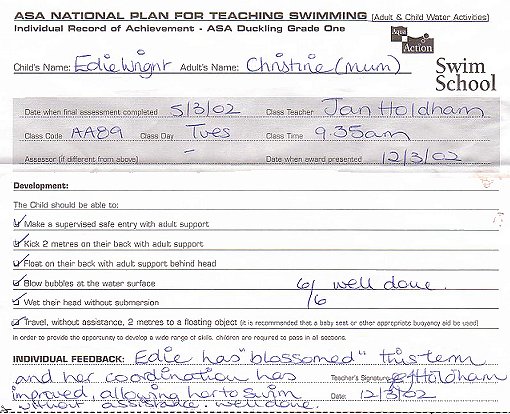 ASA NATIONAL PLAN FOR TEACHING SWIMMING (Adult & Child Water Activities)
Individual Record of Achievement - ASA Duckling Grade One
Aqua Action
Swim School
Child's Name: Edie Wright Adult's Name: Christine (Mum)
Date when final assessment completed 5/3/02 Class Teacher Jan Holdham
Class Code AA89 Class Day Tues Class Time 9.35am
Assessor (if different from above) - Date when award presented 12/3/02
Development:
The Child should be able to:
Make a supervised safe entry with adult support
Kick 2 metres on their back with adult support
Float on their back with adult support behind head
Blow bubbles at the water surface 6/6 well done.
Wet their head without submersion
Travel, without assistance, 2 metres to a floating object (it is recommended that a baby seat or other appropriate buoyancy aid be used)
In order to provide the opportunity to develop a wide range of skills, children are required to pass in all sections.
INDIVIDUAL FEEDBACK: Edie has "blossomed" this term
and her coordination has Teacher's Signature Holdham
improved, allowing her to swim Date 12/3/02
without assistance. well done.